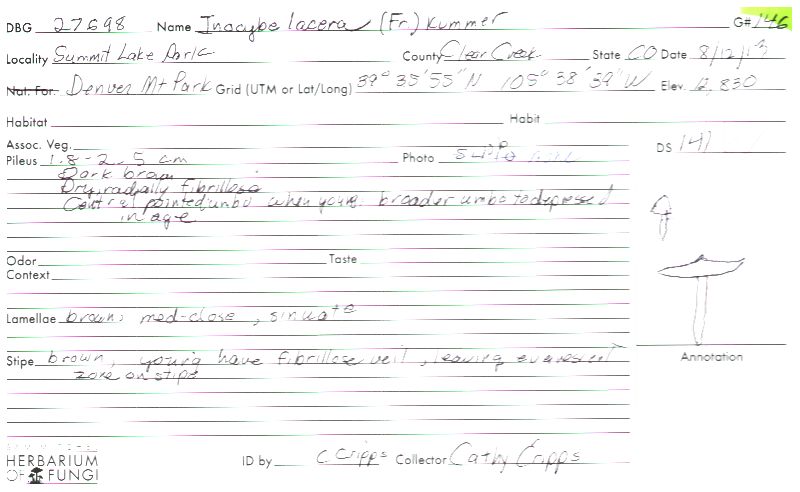 DBG 27698 Name Inocybe lacera (Fr.) Kummer G# 146
Locality Summit Lake Park County Clear Creek State CO Date 8/12/13
Nat. For. Denver Mt Park Grid (UTM or Lat/Long) 39° 35'55"N 105° 38'39"W Elev. 12,830
Habitat Habit
Assoc. Veg. DS 141
Pileus 1.8-2.5 cm Photo
Dark brown
Dry, radially fibrillose
Central pointed umbo when young broader umbo to depressed
in age
Odor Taste
Context
Lamellae brown, med-close, sinuate
Stipe brown, young have fibrillose veil, leaving evanescent Annotation
zone on stipe
HERBARIUM ID by C Cripps Collector Cathy Cripps
OF FUNGI